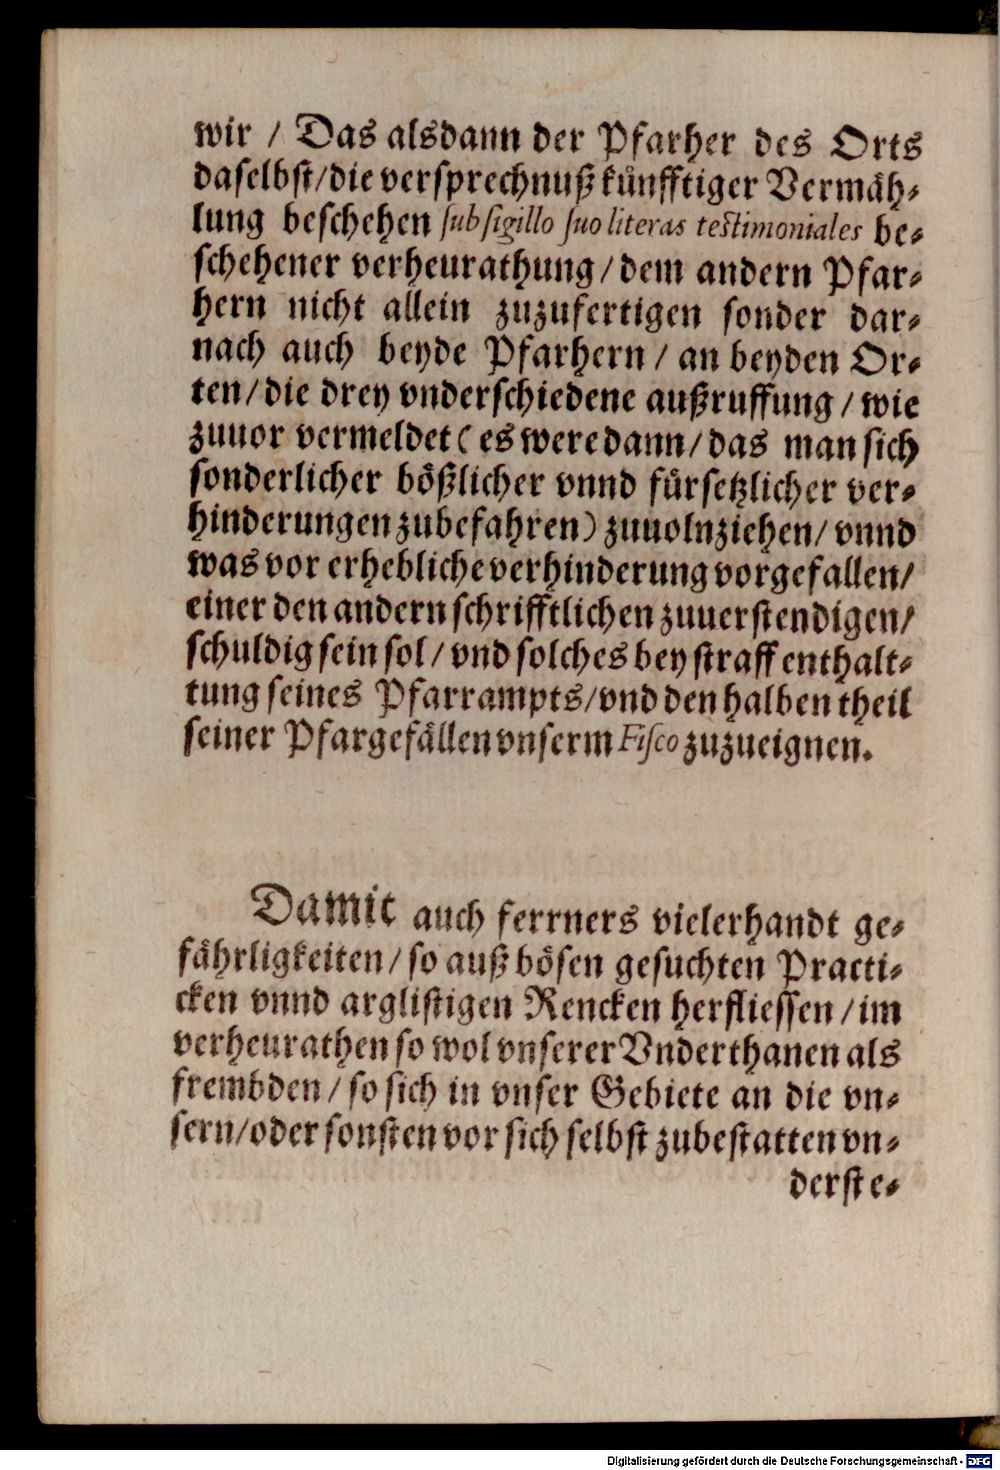 wir / Das alsdann der Pfarher des Orts
daselbst/die versprechnuß künfftiger Vermäh-
lung beschehen sub sigillo suo literas testimoniales be-
schehener verheurathung/dem andern Pfar-
hern nicht allein zuzufertigen sonder dar-
nach auch beyde Pfarhern / an beyden Or-
ten/die drey vnderschiedene außruffung / wie
zuuor vermeldet ( es were dann/das man sich
sonderlicher bößlicher vnnd fürsetzlicher ver-
hinderungen zubefahren) zuuolnziehen/ vnnd
was vor erhebliche verhinderung vorgefallen/
einer den andern schrifftlichen zuuerstendigen/
schuldig sein sol / vnd solches bey straff enthalt-
tung seines Pfarrampts/vnd den halben theil
seiner Pfargefällen vnserm Fisco zuzueignen.
Damit auch ferrners vielerhandt ge-
fährligkeiten/so auß bösen gesuchten Practi-
cken vnnd arglistigen Rencken herfliessen /im
verheurathen so wol vnserer Vnderthanen als
frembden / so sich in vnser Gebiete an die vn-
sern/oder sonsten vor sich selbst zubestatten vn-
derste-
Digitalisierung gefördert durch die Deutsche Forschungsgemeinschaft - DFG